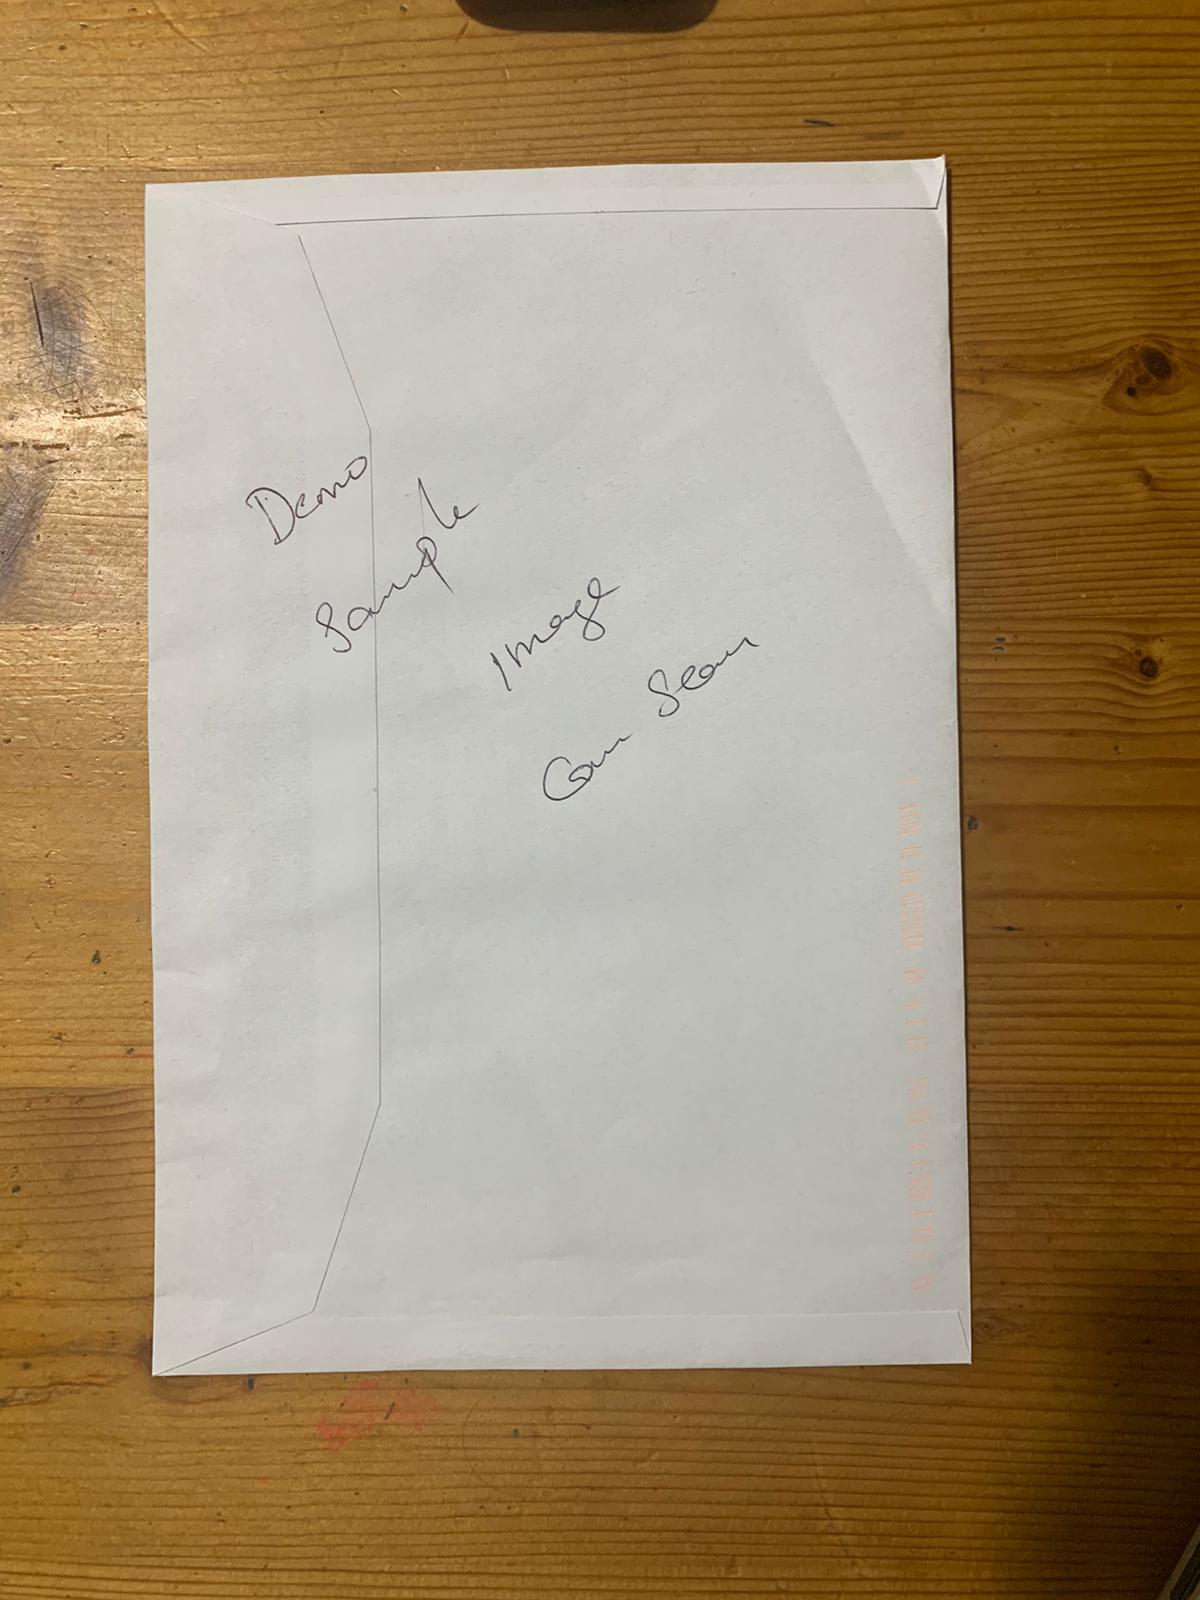 Demo
Sample
Image
Can Scan